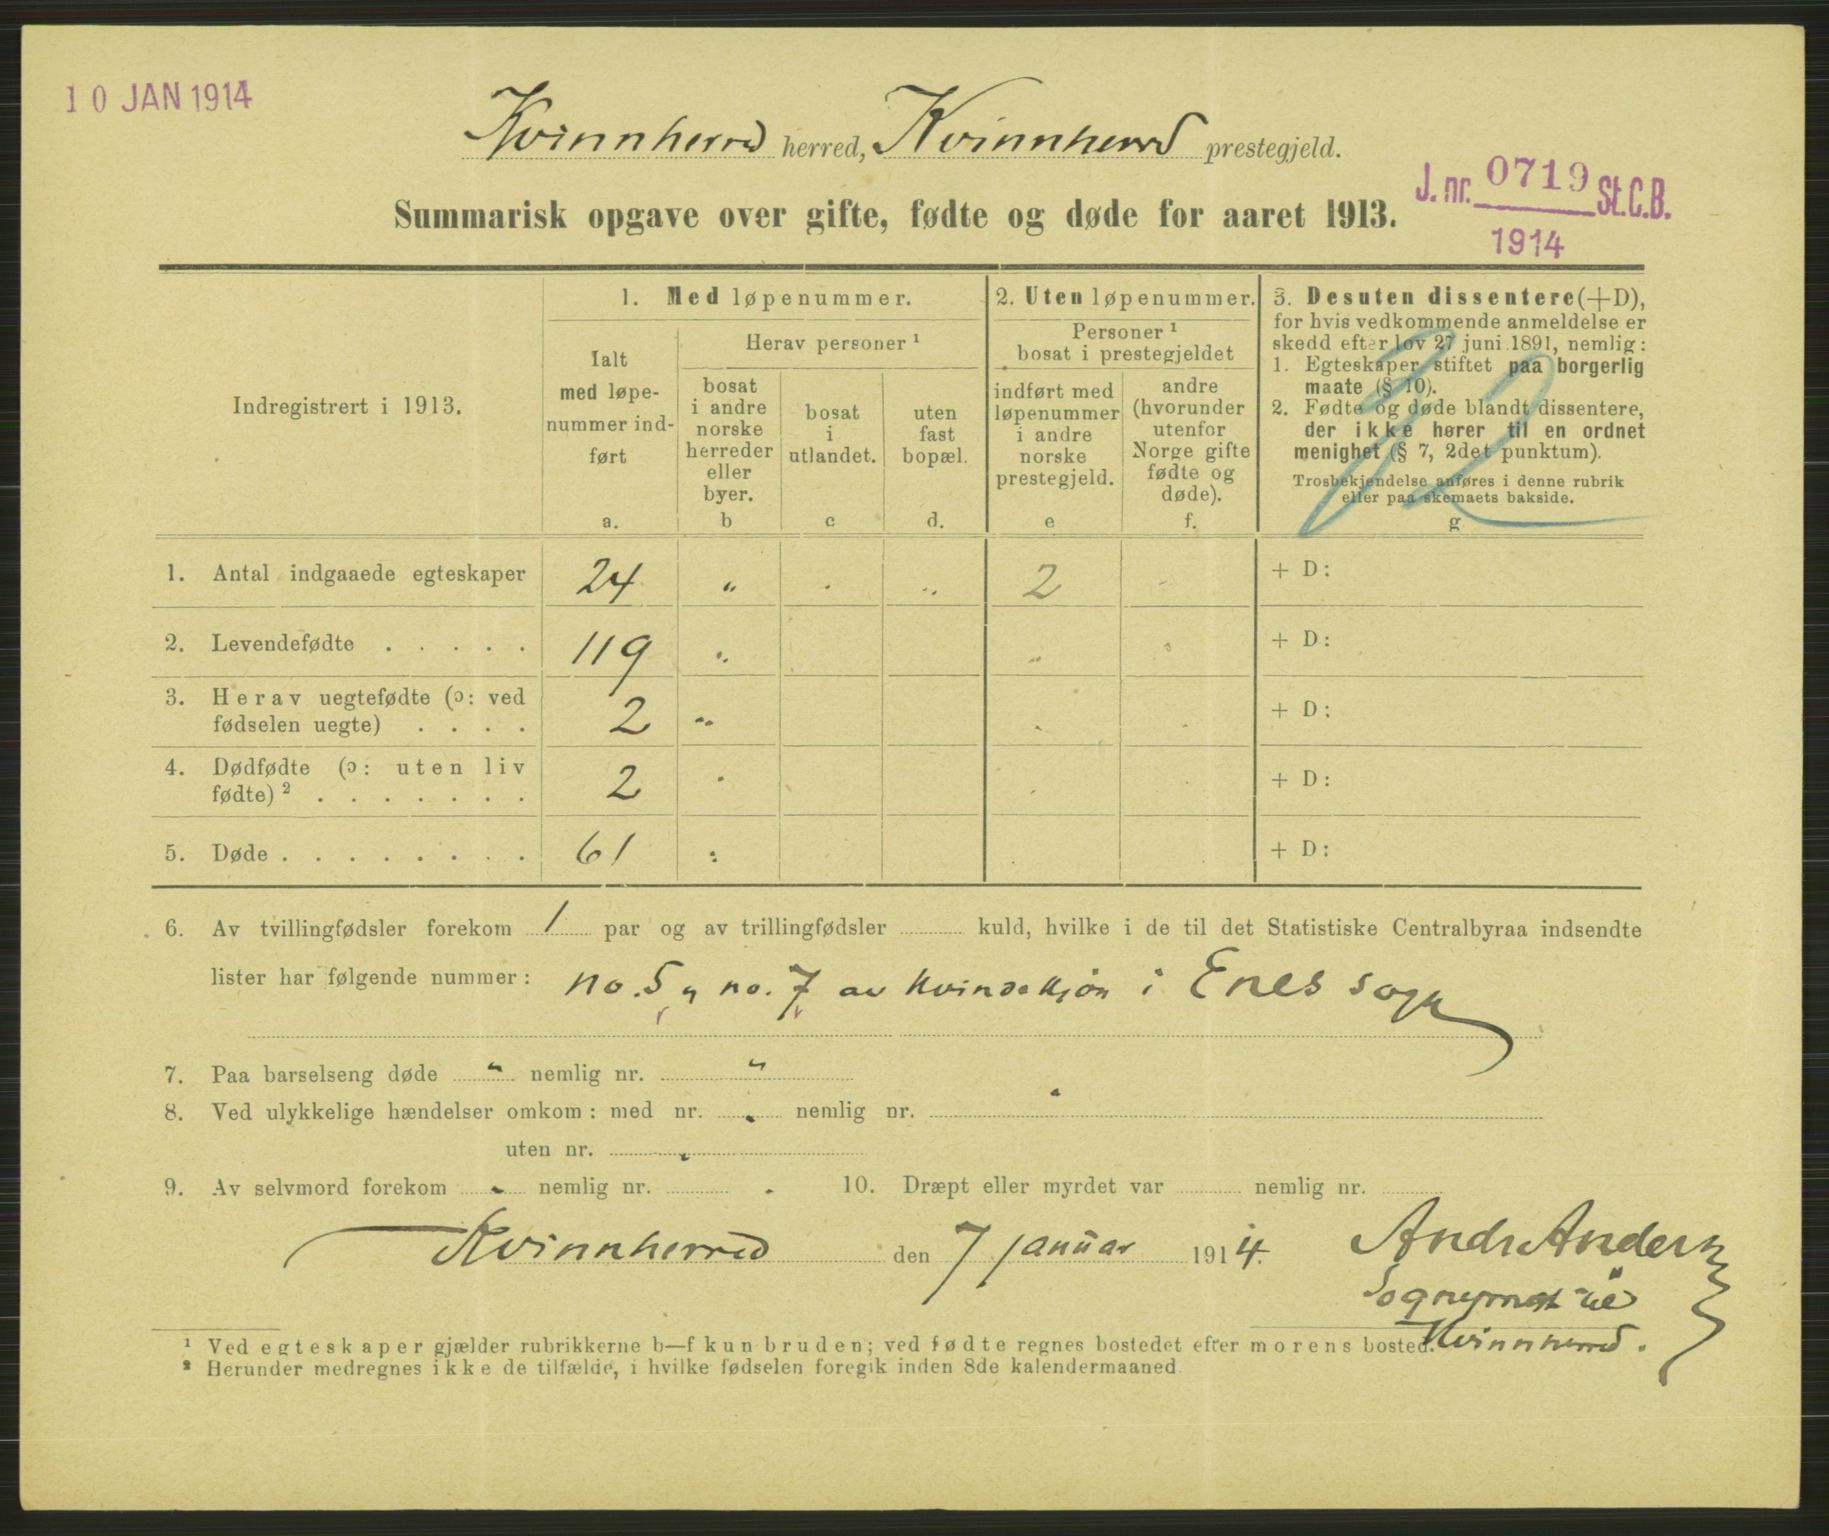 10 JAN 1914
Kvinnherred herred, Kvinnherred prestegjeld.
J. nr. 0719 St.C.B.
1914
Summarisk opgave over gifte, fødte og døde for aaret 1913.
Indregistrert i 1913.
1. Med løpenummer.
Ialt
med løpe-
nummer ind-
ført
a.
Herav personer ¹
bosat
i andre
norske
herreder
eller
byer.
b
bosat
i
utlandet.
c
uten
fast
bopæl.
d.
2. Uten løpenummer.
Personer ¹
bosat i prestegjeldet
indført med
løpenummer
i andre
norske
prestegjeld.
e
andre
(hvorunder
utenfor
Norge gifte
fødte og
døde).
f.
3. Desuten dissentere (+D),
for hvis vedkommende anmeldelse er
skedd efter lov 27 juni 1891, nemlig:
1. Egteskaper stiftet paa borgerlig
maate (§ 10).
2. Fødte og døde blandt dissentere,
der ikke hører til en ordnet
menighet (§ 7, 2det punktum).
Trosbekjendelse anføres i denne rubrik
eller paa skemaets bakside.
g
1. Antal indgaaede egteskaper 24 " . .. 2 + D:
2. Levendefødte . . . . . 119 + D:
3. Herav uegtefødte (ɔ: ved
fødselen uegte) . . . . 2 + D:
4. Dødfødte (ɔ: uten liv
fødte) ² . . . . . . . 2 + D:
5. Døde . . . . . . . . 61 + D:
6. Av tvillingfødsler forekom 1 par og av trillingfødsler kuld, hvilke i de til det Statistiske Centralbyraa indsendte
lister har følgende nummer: no. 5 og no. 7 av kvindekjøn i Enes sogn
7. Paa barselseng døde " nemlig nr. "
8. Ved ulykkelige hændelser omkom: med nr. nemlig nr.
uten nr.
9. Av selvmord forekom nemlig nr. 10. Dræpt eller myrdet var nemlig nr.
Kvinnherred den 7 januar 1914.
Andr Andersen
Sogneprest til
Kvinnherred.
¹ Ved egteskaper gjælder rubrikkerne b—f kun bruden; ved fødte regnes bostedet efter morens bosted.
² Herunder medregnes ikke de tilfælde, i hvilke fødselen foregik inden 8de kalendermaaned.